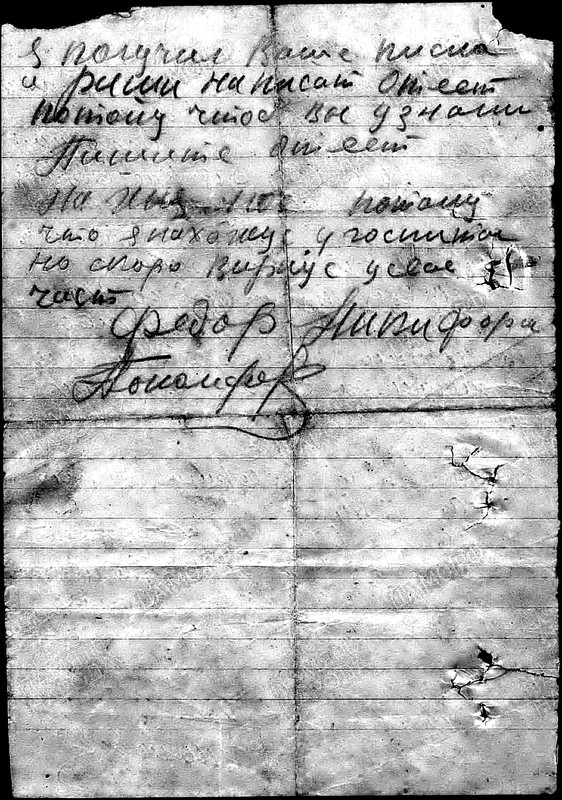 Я получил Ваше писмо
и решил написат Ответ
потому чтоб Вы узнали
Пишите Ответ
На потому
что я нахожус у госпитал
но скоро Вирнус у свое
част
Федор Никифора